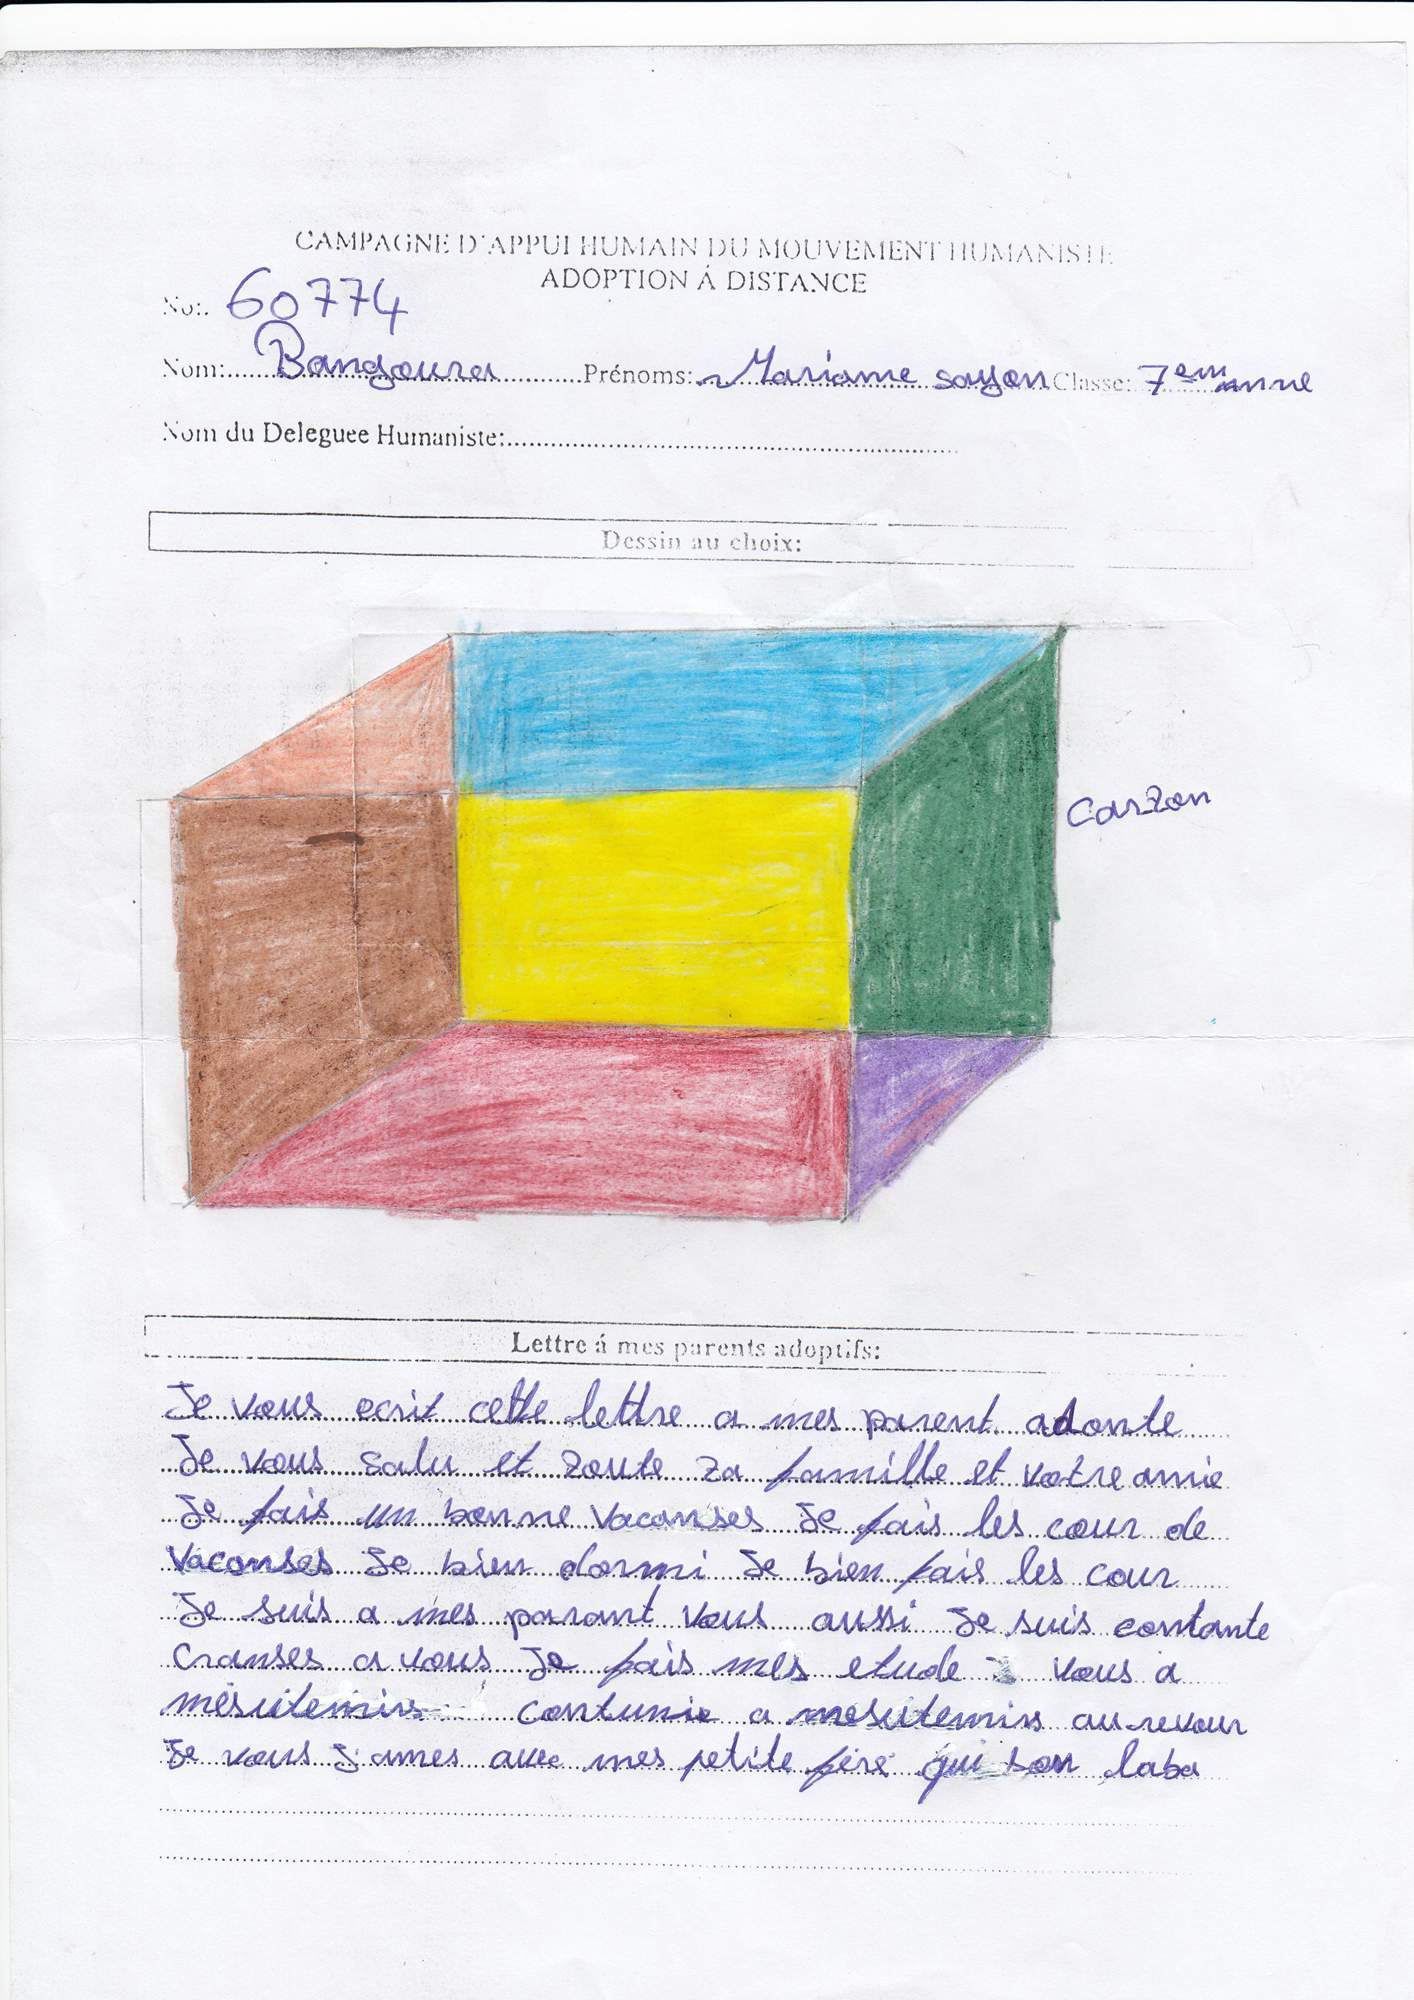 CAMPAGNE D'APPUI HUMAIN DU MOUVEMENT HUMANISTE
ADOPTION Á DISTANCE
No: 60774
Nom: Bangoura Prénoms: Mariame sayon Classe: 7em anne
Nom du Deleguee Humaniste:
Dessin au choix:
Carzon
Lettre á mes parents adoptifs:
Je vous ecrit cette lettre a mes parent adonte
Je vous salu et zoute za famille et votre amie
Je fais un bonne vacanses Je fais les cour de
vacanses Je bien dormi Je bien fais les cour
Je suis a mes parant vous aussi Je suis contante
Cranses a vous Je fais mes etude vous a
contunie a au revour
Je vous James avec mes petite fere qui bon laba